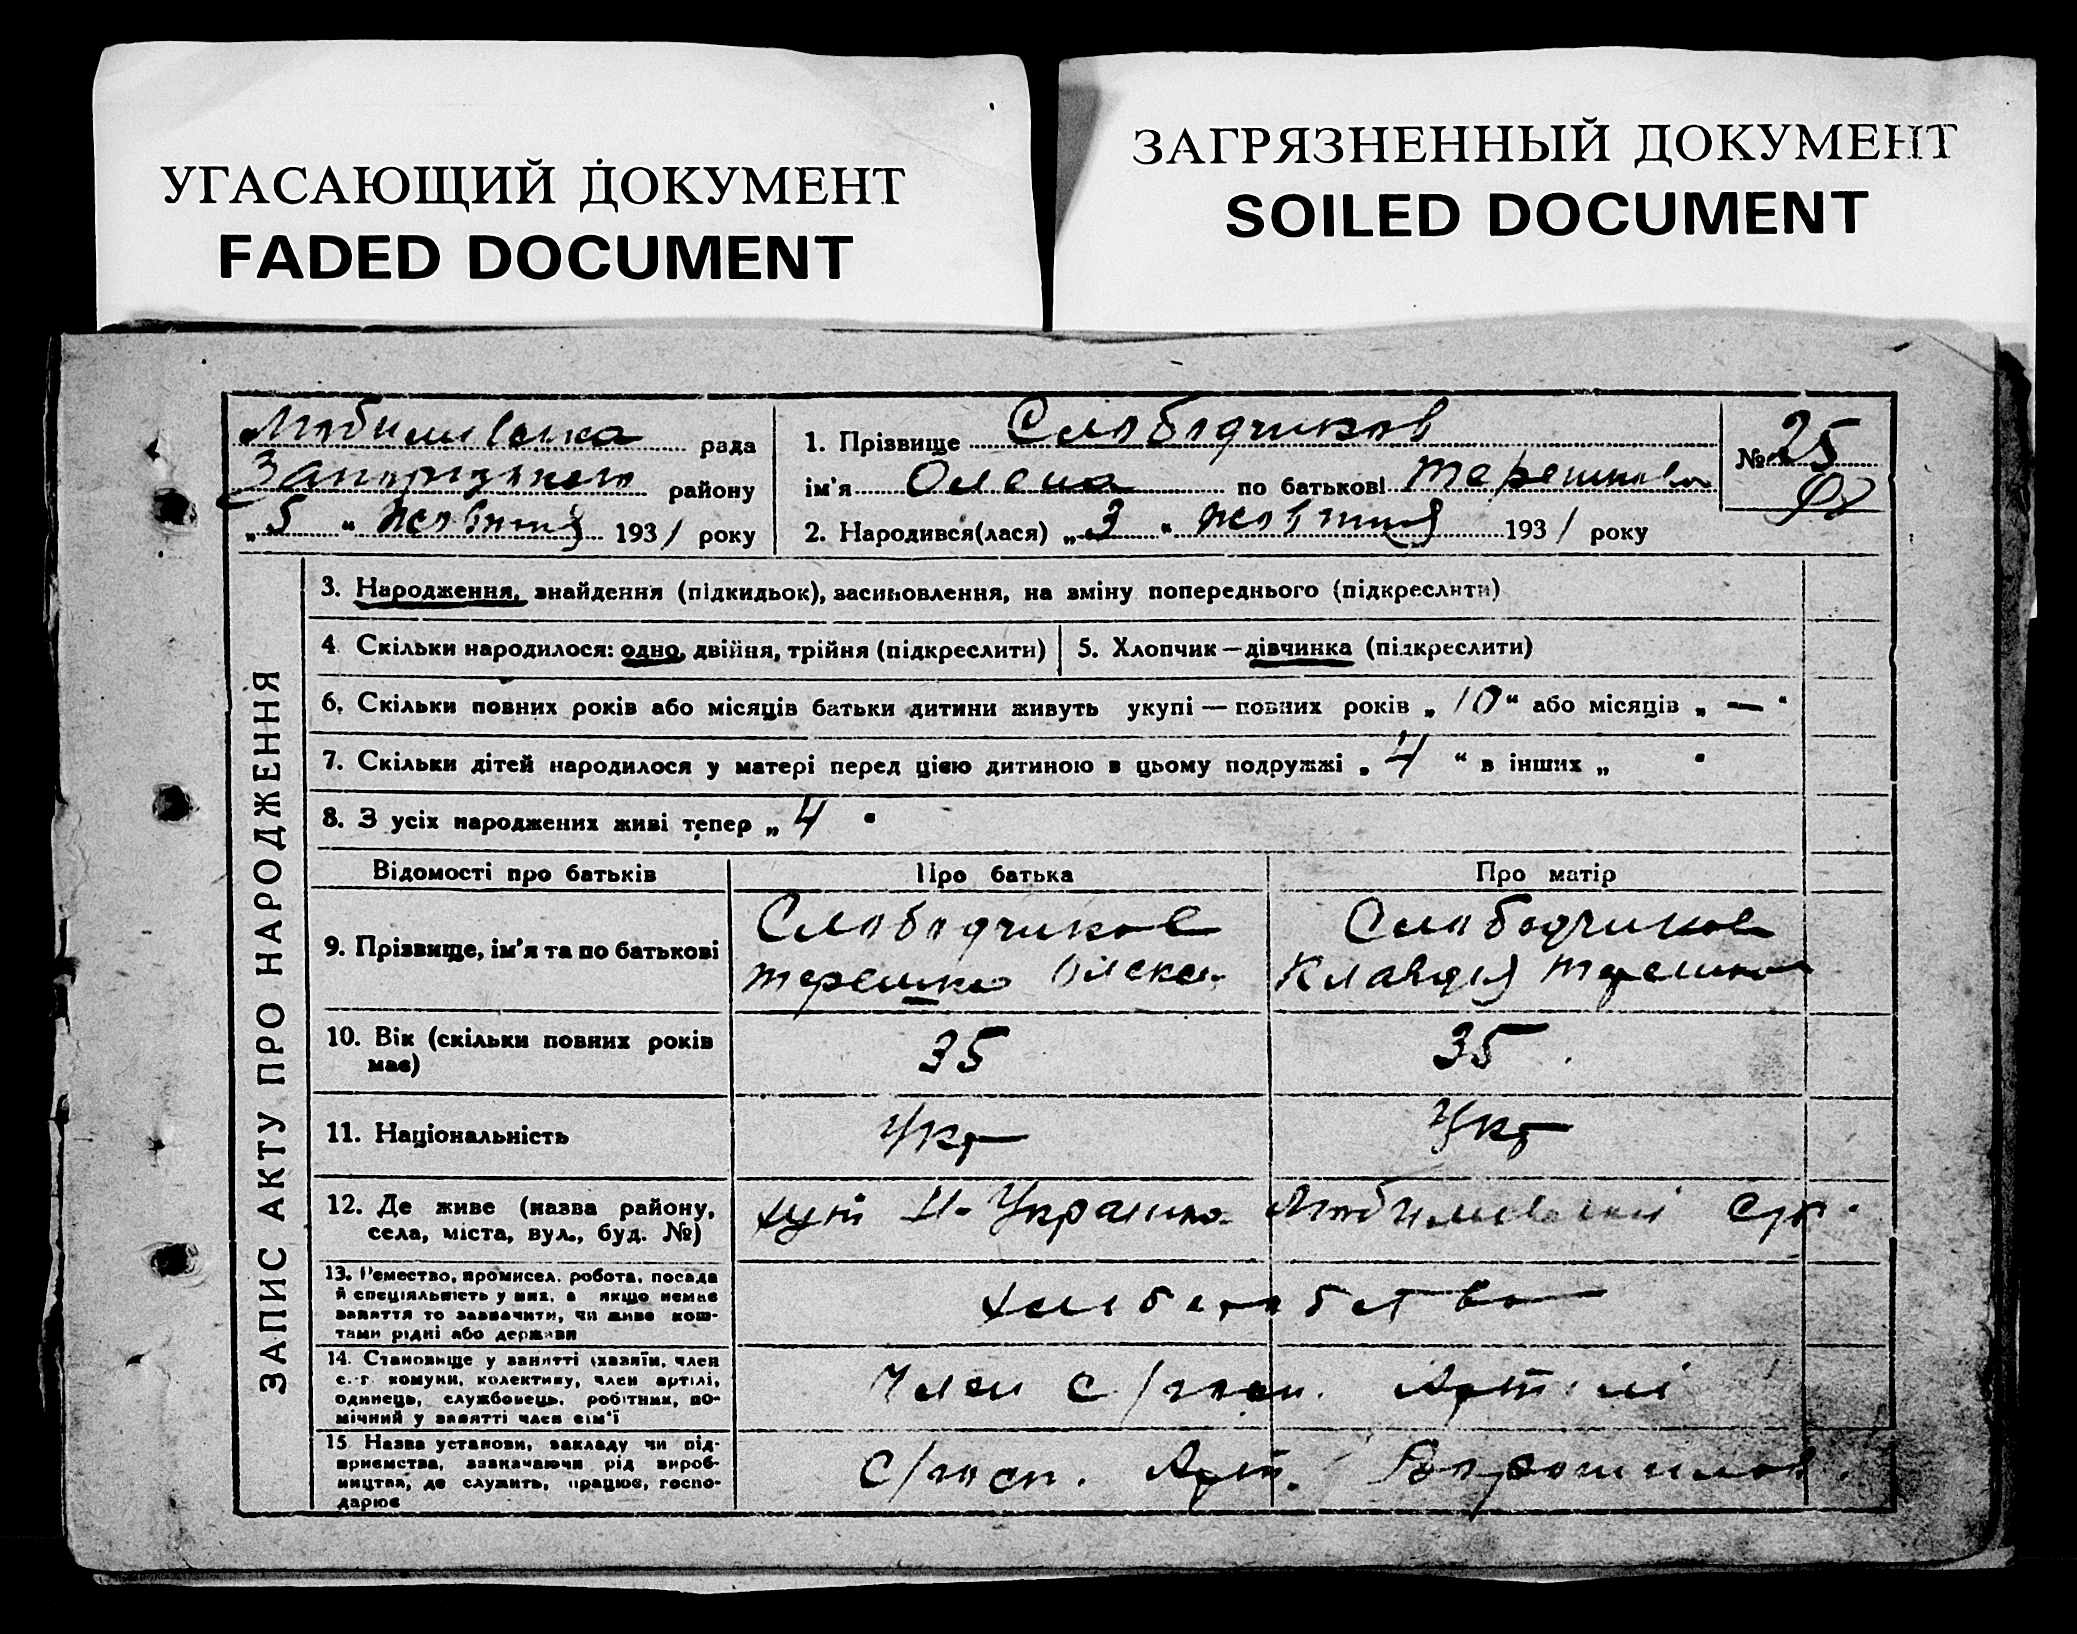 УГАСАЮЩИЙ ДОКУМЕНТ
FADED DOCUMENT
ЗАГРЯЗНЕННЫЙ ДОКУМЕНТ
SOILED DOCUMENT
Любимівська рада
Запорізького району
„5“ жовтня 1931 року
1. Прізвище Слободчиков
ім'я Олена по батькові Терешкова
2. Народився(лася) „3“ жовтня 1931 року
№ 25
ЗАПИС АКТУ ПРО НАРОДЖЕННЯ
3. Народження, знайдення (підкидьок), засиновлення, на зміну попереднього (підкреслити)
4. Скільки народилося: одно, двійня, трійня (підкреслити)
5. Хлопчик — дівчинка (підкреслити)
6. Скільки повних років або місяців батьки дитини живуть укупі — повних років „10“ або місяців „—“
7. Скільки дітей народилося у матері перед цією дитиною в цьому подружжі „4“ в інших „ “
8. З усіх народжених живі тепер „4“
Відомості про батьків Про батька Про матір
9. Прізвище, ім'я та по батькові
Слободчиков
Терешко Олекс.
Слободчиков
Клавдія
10. Вік (скільки повних років
має)
35 35
11. Національність Укр Укр
12. Де живе (назва району,
села, міста, вул., буд. №)
хут Н-Українка Любимівської с/р.
13. Ремество, промисел, робота, посада
й спеціяльність у них, а якщо немає
заняття то зазначити, чи живе кош-
тами рідні або держави
хліборобство
14. Становище у занятті (хазяїн, член
с.-г. комуни, колективу, член артілі,
одинець, службовець, робітник, по-
мічний у занятті член сім'ї
Член с/госп. Артілі
15. Назва установи, закладу чи під-
приємства, зазначаючи рід вироб-
ництва, де служить, працює, госпо-
дарює
с/госп. Арт. Ворошилов.